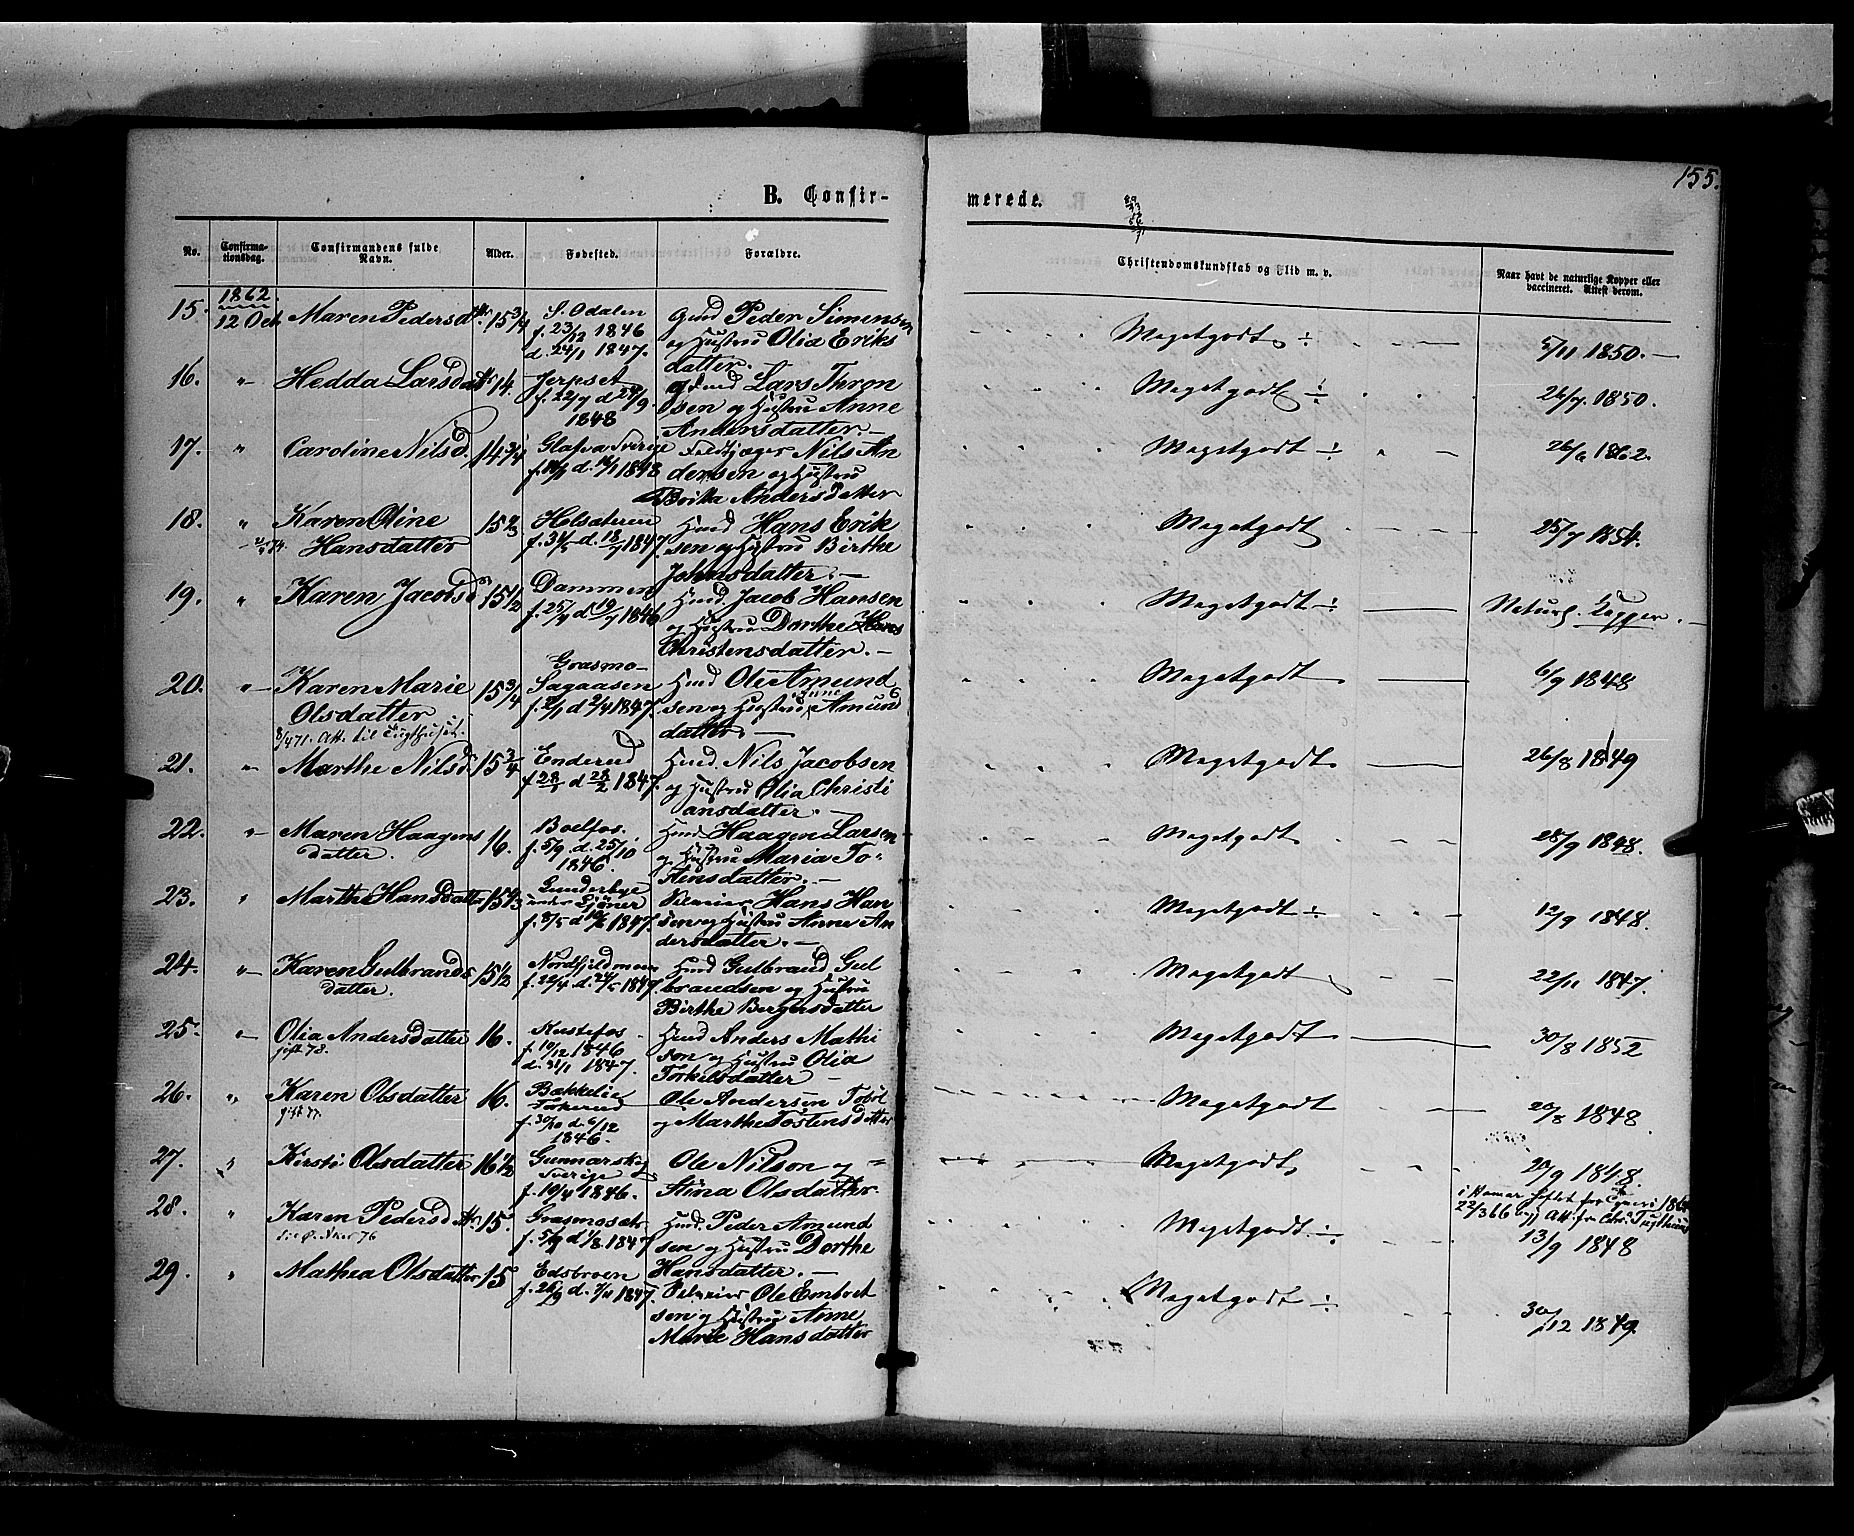 155.
B. Confir-
merede.
No.
Confirma-
tionsdag.
Confirmandens fulde
Navn.
Alder.
Fødested.
Forældre.
Christendomskundskab og Flid m. v.
Naar havt de naturlige Kopper eller
vaccineret. Attest derom.
1862.
15. 12 Oct. Maren Pedersdtr. 15 3/4
S. Odalen
f. 23/12 1846
d. 24/1 1847.
Gmd Peder Simensen
og Hustru Olia Eriks
datter.
Megetgodt ÷
5/11 1850.
16. " Hedda Larsdatr 14.
Jerpset
f. 22/7 d 24/9.
1848
Lars Thron
sen og Hustru Anne
Andersdatter.
Megetgodt ÷
26/7 1850.
17. " Caroline Nilsd. 14 3/4
Glafva Sverige
1848
Feldtjæger Nils An
dersen og Hustru
Britta Andersdatter
Megetgodt ÷
26/6 1862.
18. " Karen Oline
Hansdatter
15 2/3
Helsæteren
f. 31/5 d. 18/7 1847.
Hmd Hans Erik
sen og Hustru Birthe
Johnsdatter. —
Megetgodt
25/7 1854.
19. " Karen Jacobsd 15 1/2
Dammen
f. 25/4 d 19/7 1846
Hmd. Jacob Hansen
og Hustru Dorthe
Christensdatter. —
Megetgodt ÷
Naturl. Kopper.
20. " Karen Marie
Olsdatter
15 3/4
Att. til Tugthuset.
Grasmo-
Sagaasen
f. 21/1 d 2/4 1847.
Hmd Ole Amund
sen og Hustru Anne Amunds
datter. —
Megetgodt
6/9 1848
21. " Marthe Nilsd. 15 3/4
Enderud
f 28/1 d 28/2 1847.
Hmd. Nils Jacobsen
og Hustru Olia Christi
ansdatter. —
Megetgodt
26/8 1849
22. " Maren Haagens
datter.
16.
Boelfos.
f. 5/9 d. 25/10
1846.
Hmd Haagen Larsen
og Hustru Maria To-
stensdatter. —
Megetgodt
28/9 1848.
23. " Marthe Hansdatter 15 1/3
Gunderbye
under
1847.
Hans Han
sen og Hustru Anne An
dersdatter. —
Megetgodt ÷
12/9 1848.
24. " Karen Gulbrands
datter.
15 1/2
Nordfjeldmoen
f. 22/4 d. 24/5 1847.
Hmd Gulbrand Gul
brandsen og Hustru
Birthe Bergersdatter
Megetgodt
22/11 1847.
25. " Olia Andersdatter 16.
gift 78.
Kustefos
f. 10/12 1846
d. 31/1 1847.
Hmd Anders Mathi
sen og Hustru Olia
Torkelsdatter —
Megetgodt
30/8 1852
26. " Karen Olsdatter 16.
gift 77.
Bakkelie
f. 30/10 d. 6/12
1846.
Ole Andersen
og Marthe Tostensdatter
Megetgodt
20/8 1848.
27. " Kirsti Olsdatter 16 1/2
Gunnarskog
Sverige
f. 10/4 1846.
Ole Nilson og
Stina Olsdatter.
Megetgodt
20/9 1848.
28. " Karen Pedersdtr. 15.
Grasmosætr.
f. 5/9 d 1/8 1847
Hmd. Peder Amund
sen og Hustru Dorthe
Hansdatter. —
Megetgodt. ÷
13/9 1848
29. " Mathea Olsdatter 15
Edsbroen
f. 26/9 d. 7/11 1847.
Ole Embret
sen og Hustru Anne
Marie Hansdatter
Megetgodt ÷
30/12 1849.